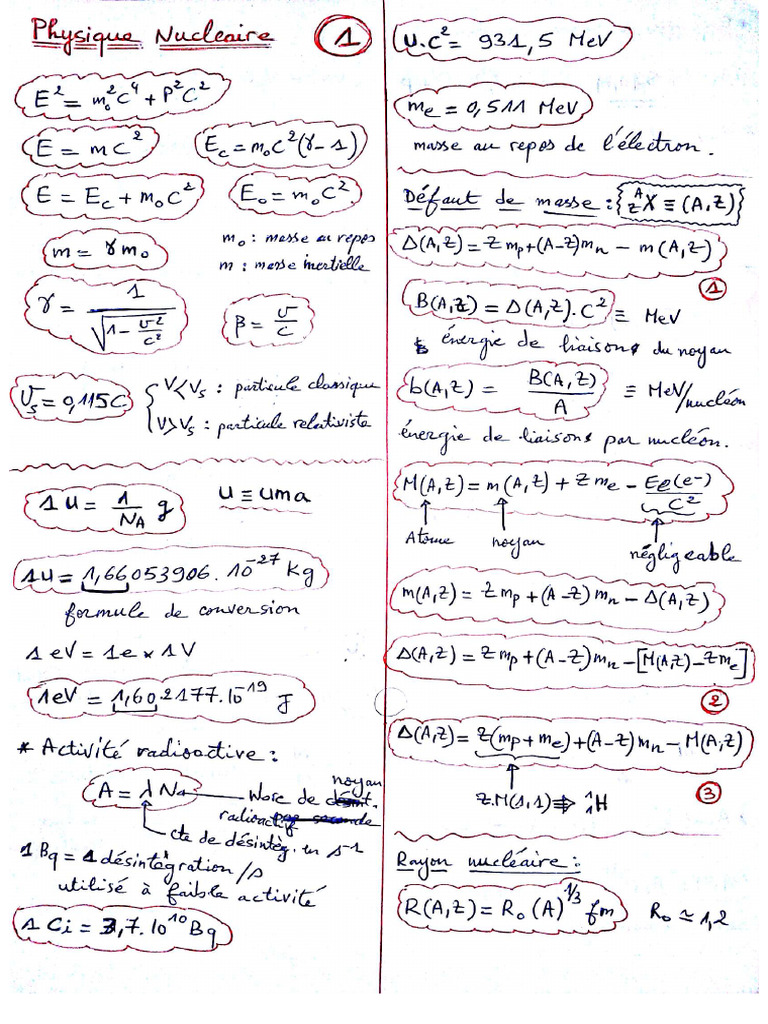 Physique Nucleaire ①
E² = m₀²C⁴ + P²C²
E = mC²
E_c = m₀C²(γ-1)
E = E_c + m₀C²
E₀ = m₀C²
m = γ m₀
m₀ : masse au repos
m : masse inertielle
γ = 1 / √(1 - v²/c²)
β = v/c
V_s = 0,115C
V<V_s : particule classique
V>V_s : particule relativiste
1 u = 1/N_A g
u ≡ uma
1u = 1,66053906.10⁻²⁷ Kg
formule de conversion
1 eV = 1e × 1V
1eV = 1,602177.10⁻¹⁹ J
* Activité radioactive :
A = λ N
Nbre de noyau
radioactif
cte de désintég. en s⁻¹
1 Bq = 1 désintégration /s
utilisé à faible activité
1 Ci = 3,7.10¹⁰ Bq
u.c² = 931,5 MeV
m_e = 0,511 MeV
masse au repos de l'électron.
Défaut de masse : {ᴬ_Z X ≡ (A,Z)}
Δ(A,Z) = Z m_p + (A-Z)m_n - m(A,Z)
①
B(A,Z) = Δ(A,Z).C² ≡ MeV
énergie de liaisons du noyau
b(A,Z) = B(A,Z)/A ≡ MeV/nucléon
énergie de liaisons par nucléon.
M(A,Z) = m(A,Z) + Z m_e - E_e(e⁻)/C²
Atome noyau négligeable
m(A,Z) = Z m_p + (A-Z)m_n - Δ(A,Z)
Δ(A,Z) = Z m_p + (A-Z)m_n - [M(A,Z) - Z m_e]
②
Δ(A,Z) = Z(m_p + m_e) + (A-Z)m_n - M(A,Z)
③
Z.M(1,1) ⇒ ¹₁H
Rayon nucléaire :
R(A,Z) = R₀(A)^1/3 fm R₀ ≃ 1,2